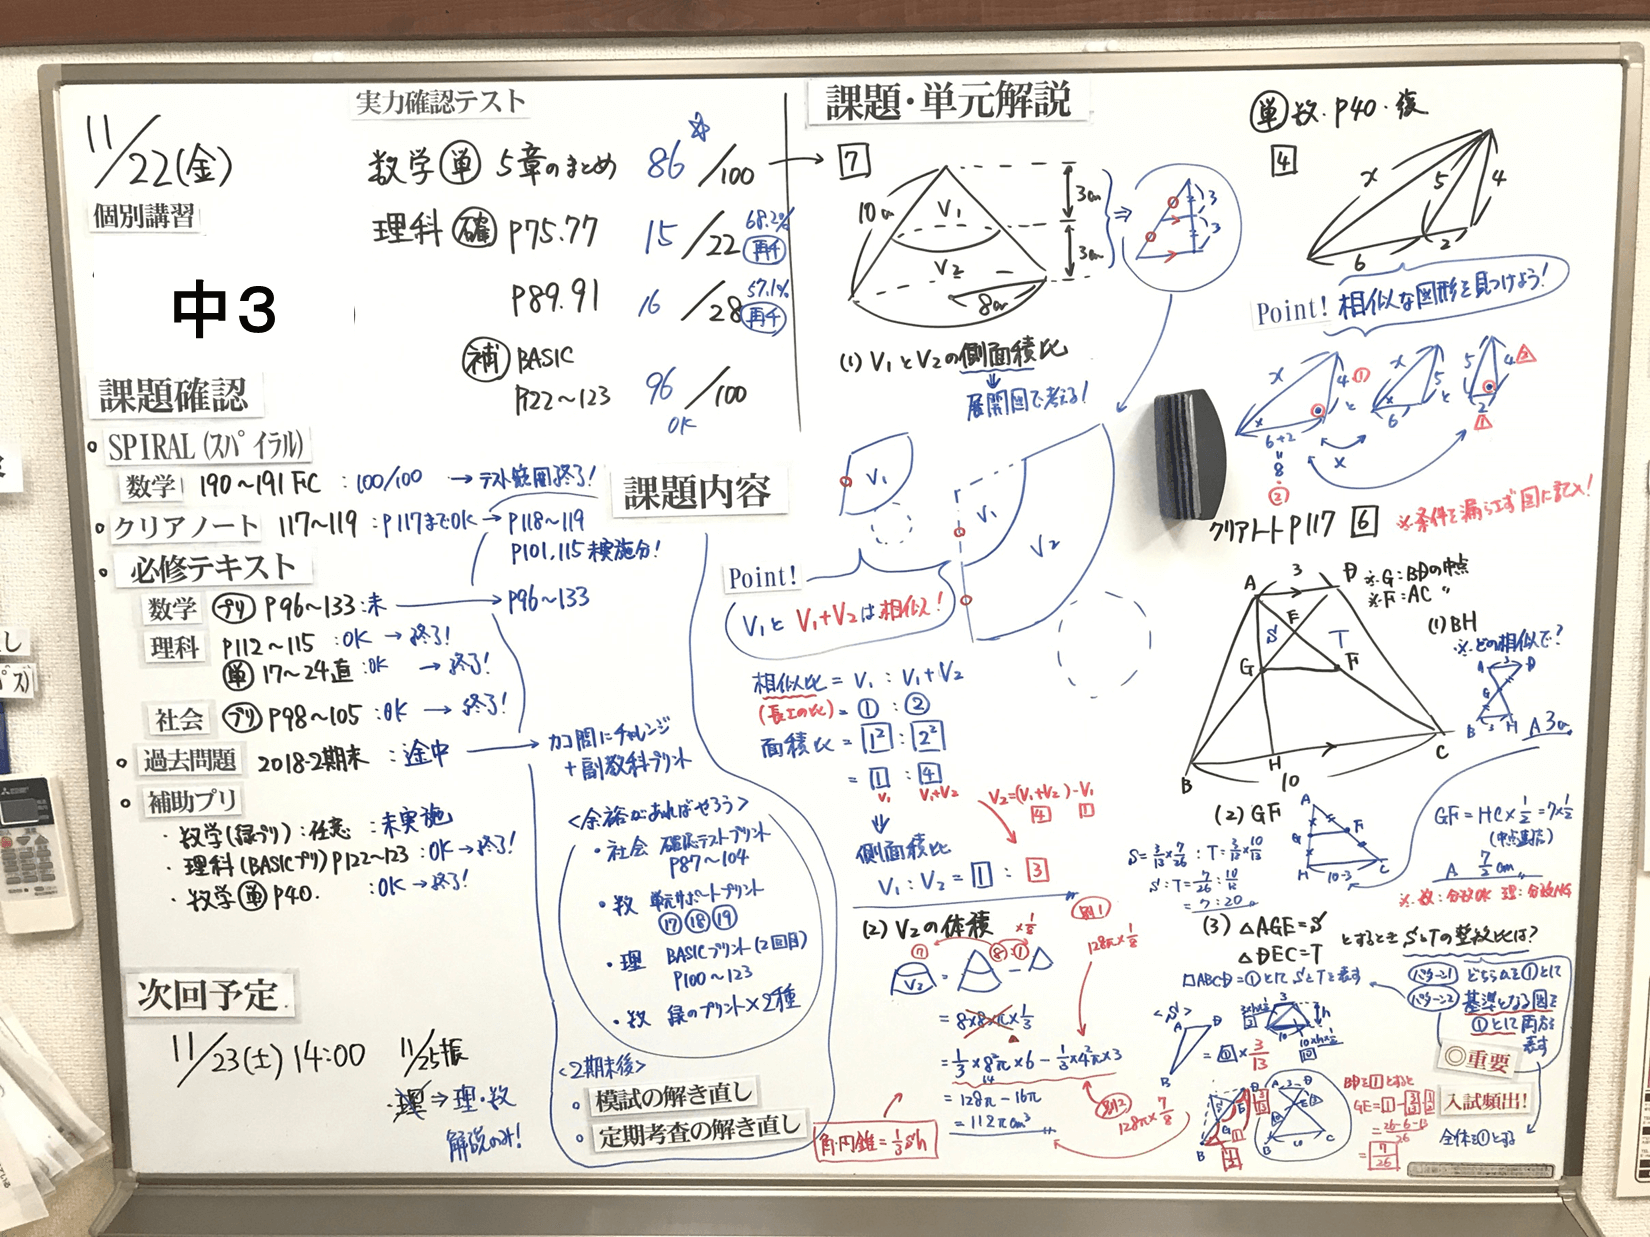 11/22(金)
個別講習
中3
実力確認テスト
数学 単 5章のまとめ 86/100
理科 確 P75.77 15/22 68.2% 再チ
P89.91 16/28 57.1% 再チ
補 BASIC
P122～123 96/100
OK
課題確認
SPIRAL (スパイラル)
数学 190～191 FC : 100/100 → テスト範囲終了!
クリアノート 117～119 : P117までOK → P118～119
P101,115 未実施分!
必修テキスト
数学 プリ P96～133 : 未 → P96～133
理科 P112～115 : OK → 終了!
単 17～24直 : OK → 終了!
社会 プリ P98～105 : OK → 終了!
過去問題 2018-2期末 : 途中 → カコ問にチャレンジ
+副教科プリント
補助プリ
・数学(緑プリ) : 任意 : 未実施
・理科(BASICプリ) P122～123 : OK → 終了!
・数学 単 P40. : OK → 終了!
次回予定
11/23(土) 14:00
11/25振
理 ⇒ 理・数
解説のみ!
課題内容
<余裕があればやろう>
・社会 確認テストプリント
P87～104
・数 単元サポートプリント
⑰⑱⑲
・理 BASICプリント(2回目)
P100～123
・数 緑のプリント×2種
<2期末後>
模試の解き直し
定期考査の解き直し
課題・単元解説
7
10cm
V1
V2
3cm
3cm
8cm
3
3
(1) V1とV2の側面積比
展開図で考える!
V1
V1
V2
Point!
V1とV1+V2は相似!
相似比 = V1 : V1+V2
(長さの比) = ① : ②
面積比 = 1² : 2²
= 1 : 4
V1 V1+V2
V2=(V1+V2)-V1
4 1
側面積比
V1 : V2 = 1 : 3
(2) V2の体積
×1/8
⑦ ⑧ ①
V2
= 8×8×π×1/3
= 1/3×8²π×6 - 1/3×4²π×3
= 128π - 16π
= 112π cm³
別1
128π×1/8
別2
128π×7/8
角・円錐=1/3Sh
単 数. P40. 後
4
x 5 4
6 2
Point! 相似な図形を見つけよう!
x 4 ①
6+2
8
②
x 5
6
5 4
2
※条件を漏らさず図に記入!
クリアノートP117 6
A 3 D
E
S T
G F
B H C
10
※G:BDの中点
※F:AC 〃
(1) BH
※どの相似で?
A 3 D
G
B 3 H
A 3cm
(2) GF
A
G F
H 10-3 C
GF = HC×1/2 = 7×1/2
(中点連結)
A 7/2 cm
※数:分数OK 理:分数NG
S=3/13×7/26 : T=3/13×10/13
S:T=7/26:10/13
=7:20
(3) △AGE=S
△DEC=T
とするときSとTの整数比は?
□ABCD=①としてSとTを表す
パターン1 どちらかを①として
パターン2 基準となる図を
①として両方を
表す
◎重要
入試頻出!
全体を①とする
<S>
A D
B
= 1 × 3/13
BDを1とすると
= 26-6-13/26
= 7/26